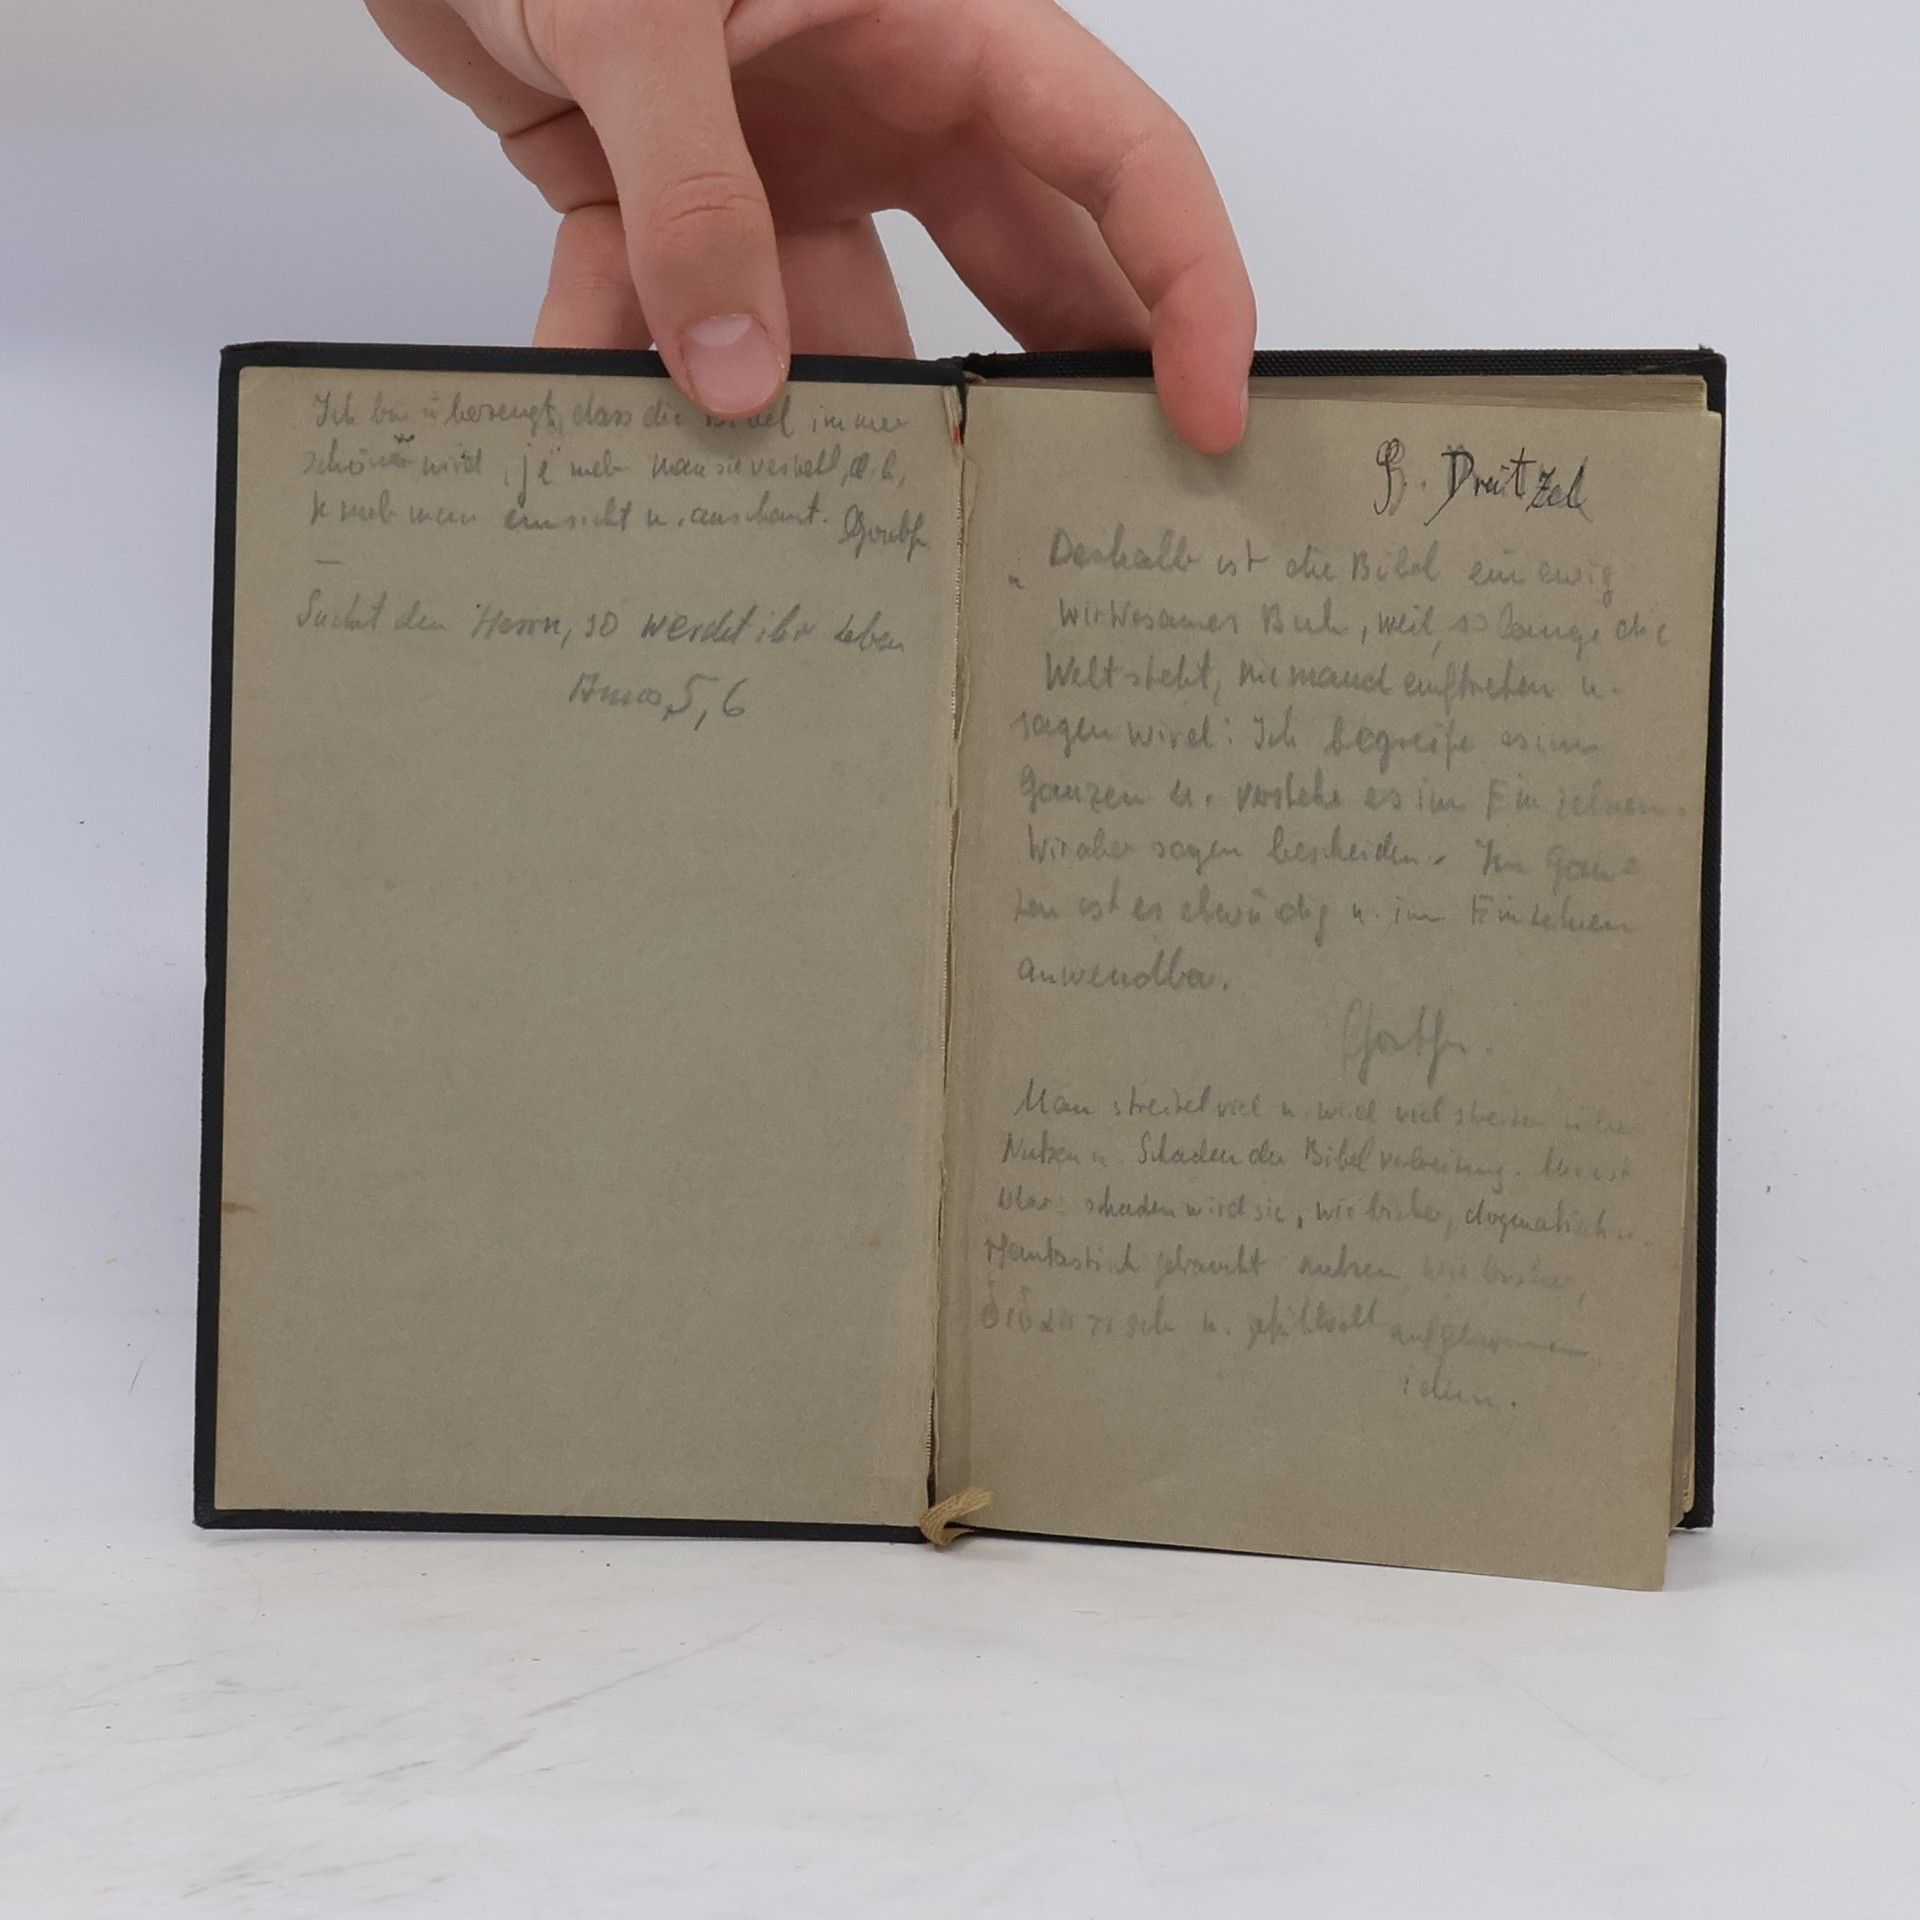 Ich bin überzeugt, dass die Bibel immer
schöner wird, je mehr man sie versteht, d. h.
je mehr man einsicht u. anschaut. Goethe
—
Suchet den Herrn, so werdet ihr leben
Amos, 5, 6
Dreitzel
" Deshalb ist die Bibel ein ewig
wirksames Buch, weil, so lange die
Welt steht, niemand auftreten u.
sagen wird: Ich begreife es im
Ganzen u. verstehe es im Einzelnen.
Wir aber sagen bescheiden: Im Gan=
zen ist es ehrwürdig u. im Einzelnen
anwendbar.
Goethe.
Man streitet viel u. wird viel streiten über
Nutzen u. Schaden der Bibelverbreitung. Mir ist
klar: schaden wird sie, wie bisher, dogmatisch u.
phantastisch gebraucht nutzen, wie bisher,
didaktisch u. gefühlvoll aufgenommen.
idem.